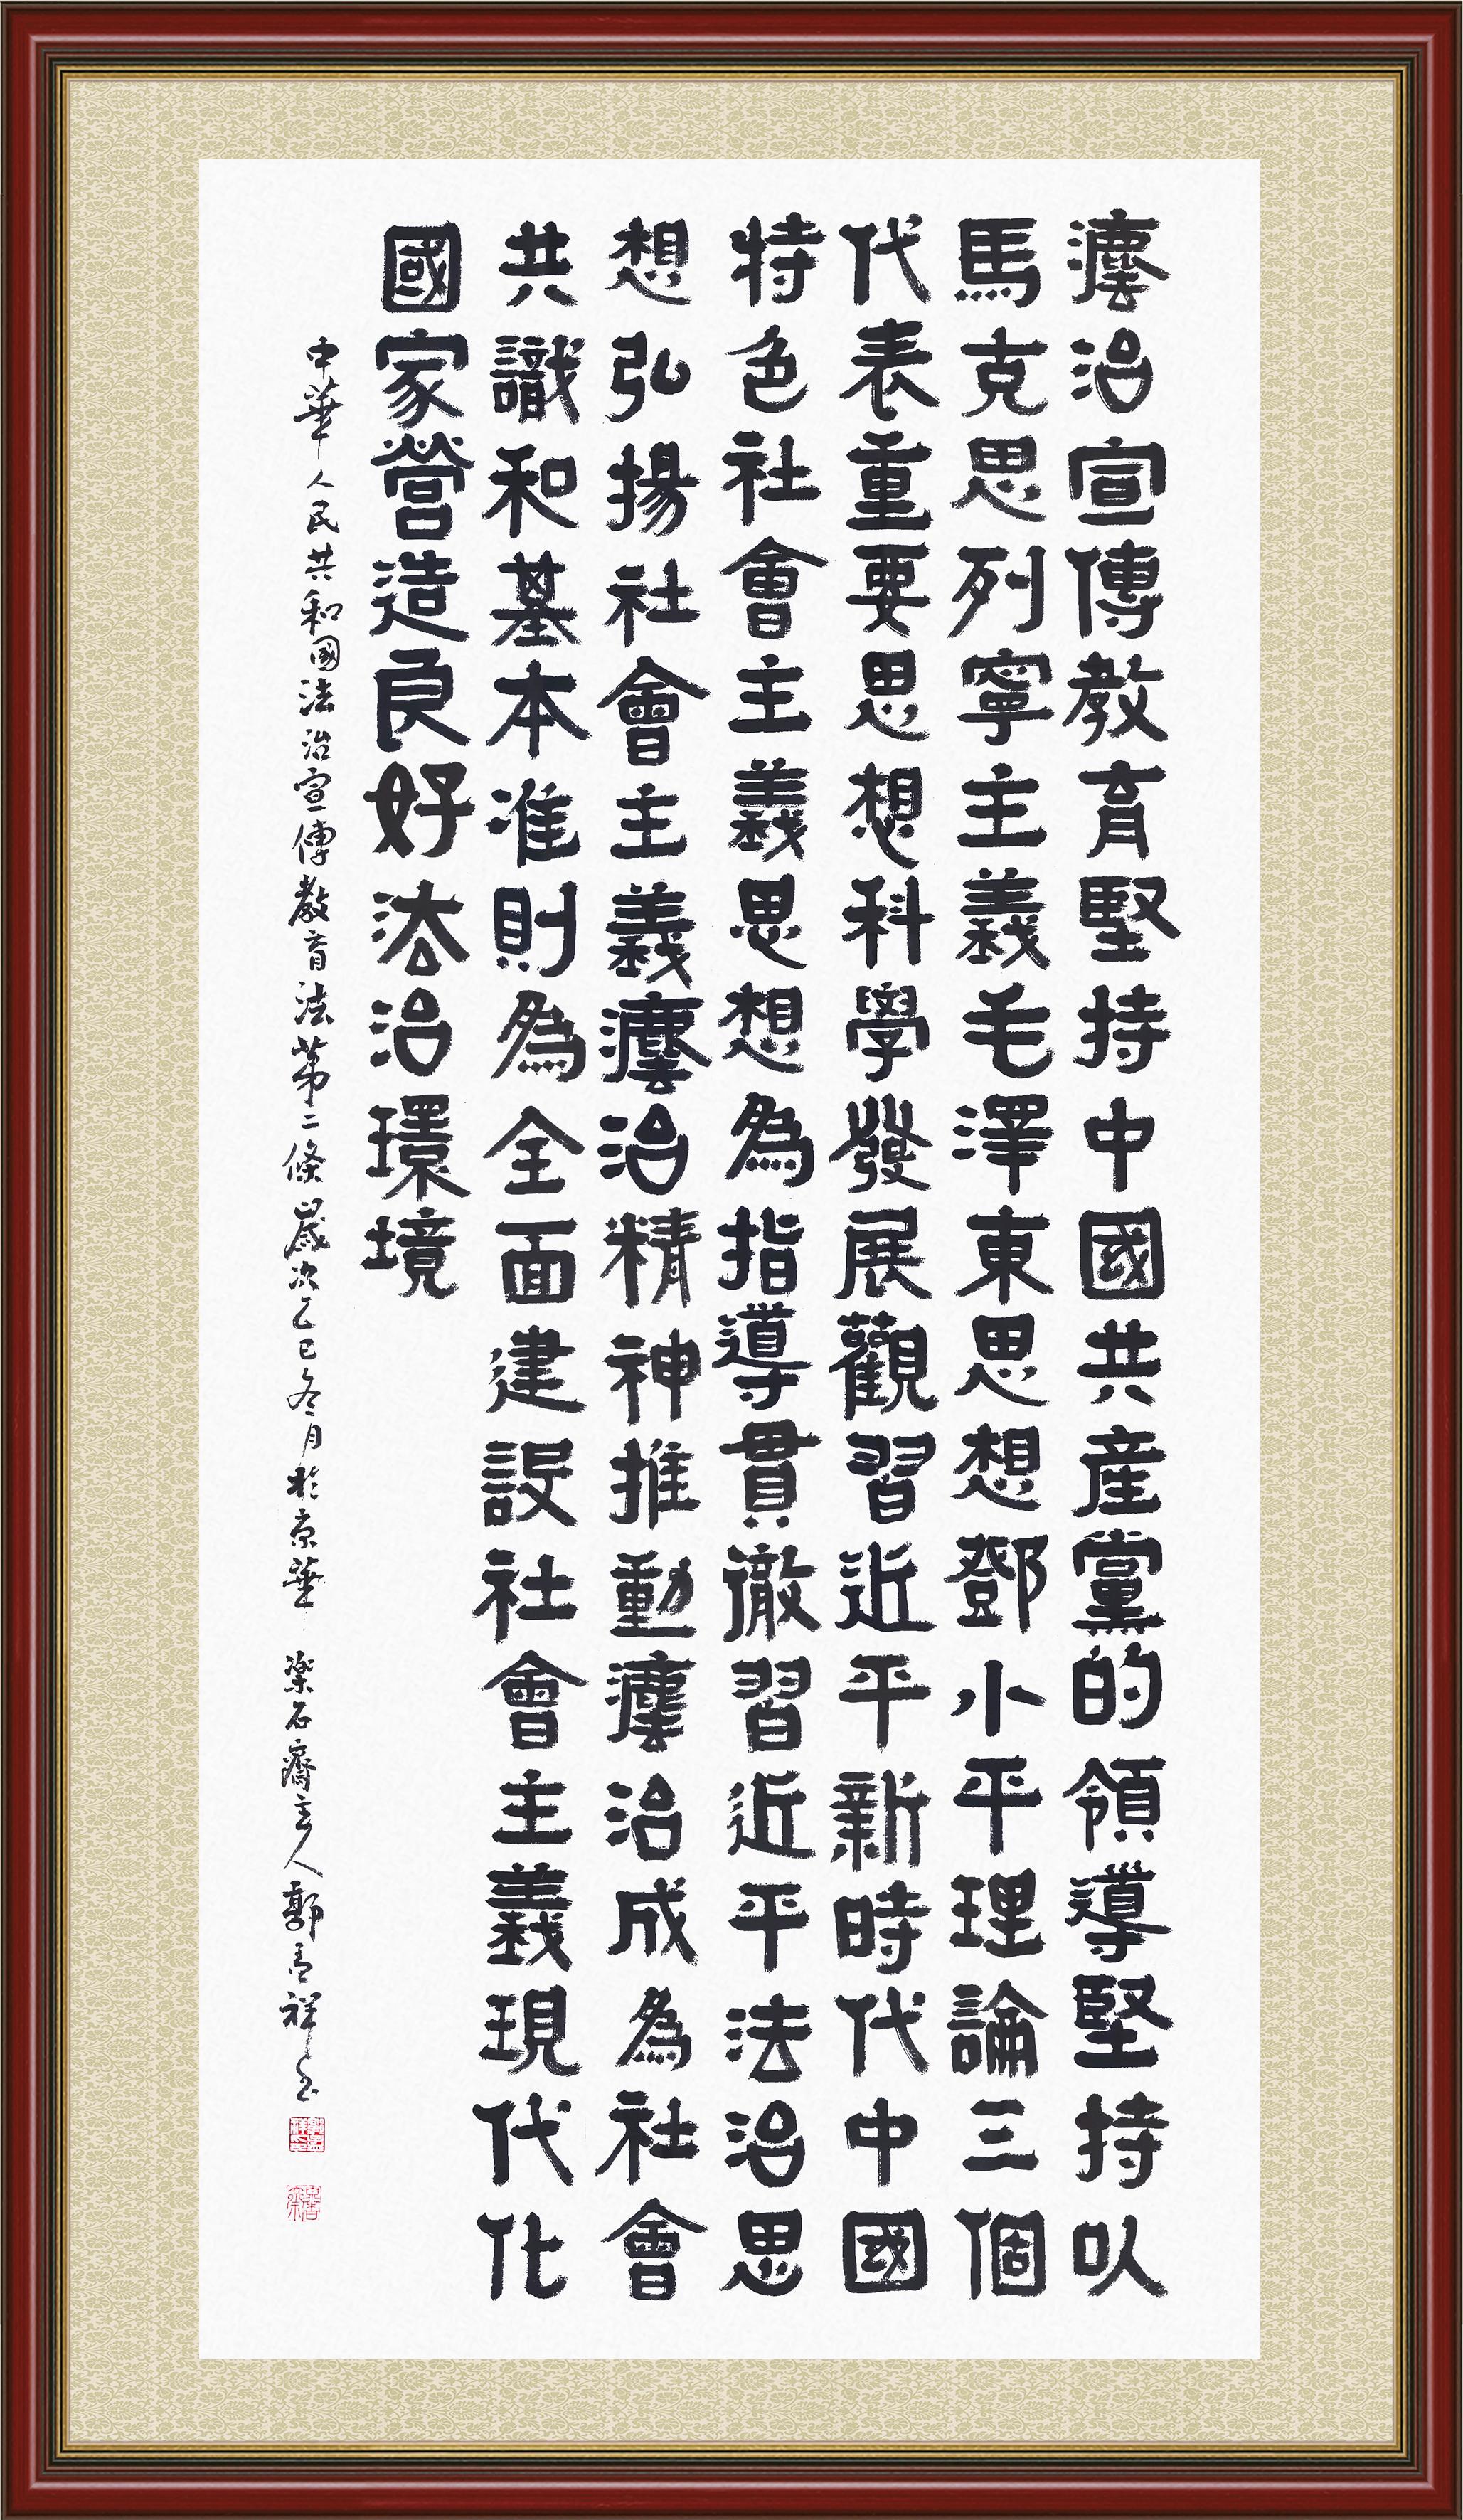 灋治宣傳教育堅持中國共産黨的領導堅持以
馬克思列寧主義毛澤東思想鄧小平理論三個
代表重要思想科學發展觀習近平新時代中國
特色社會主義思想為指導貫徹習近平法治思
想弘揚社會主義灋治精神推動灋治成為社會
共識和基本准則為全面建設社會主義現代化
國家營造良好法治環境
中華人民共和國法治宣傳教育法第二條歲次乙巳冬月於京華 楽石齋主人郭祥書